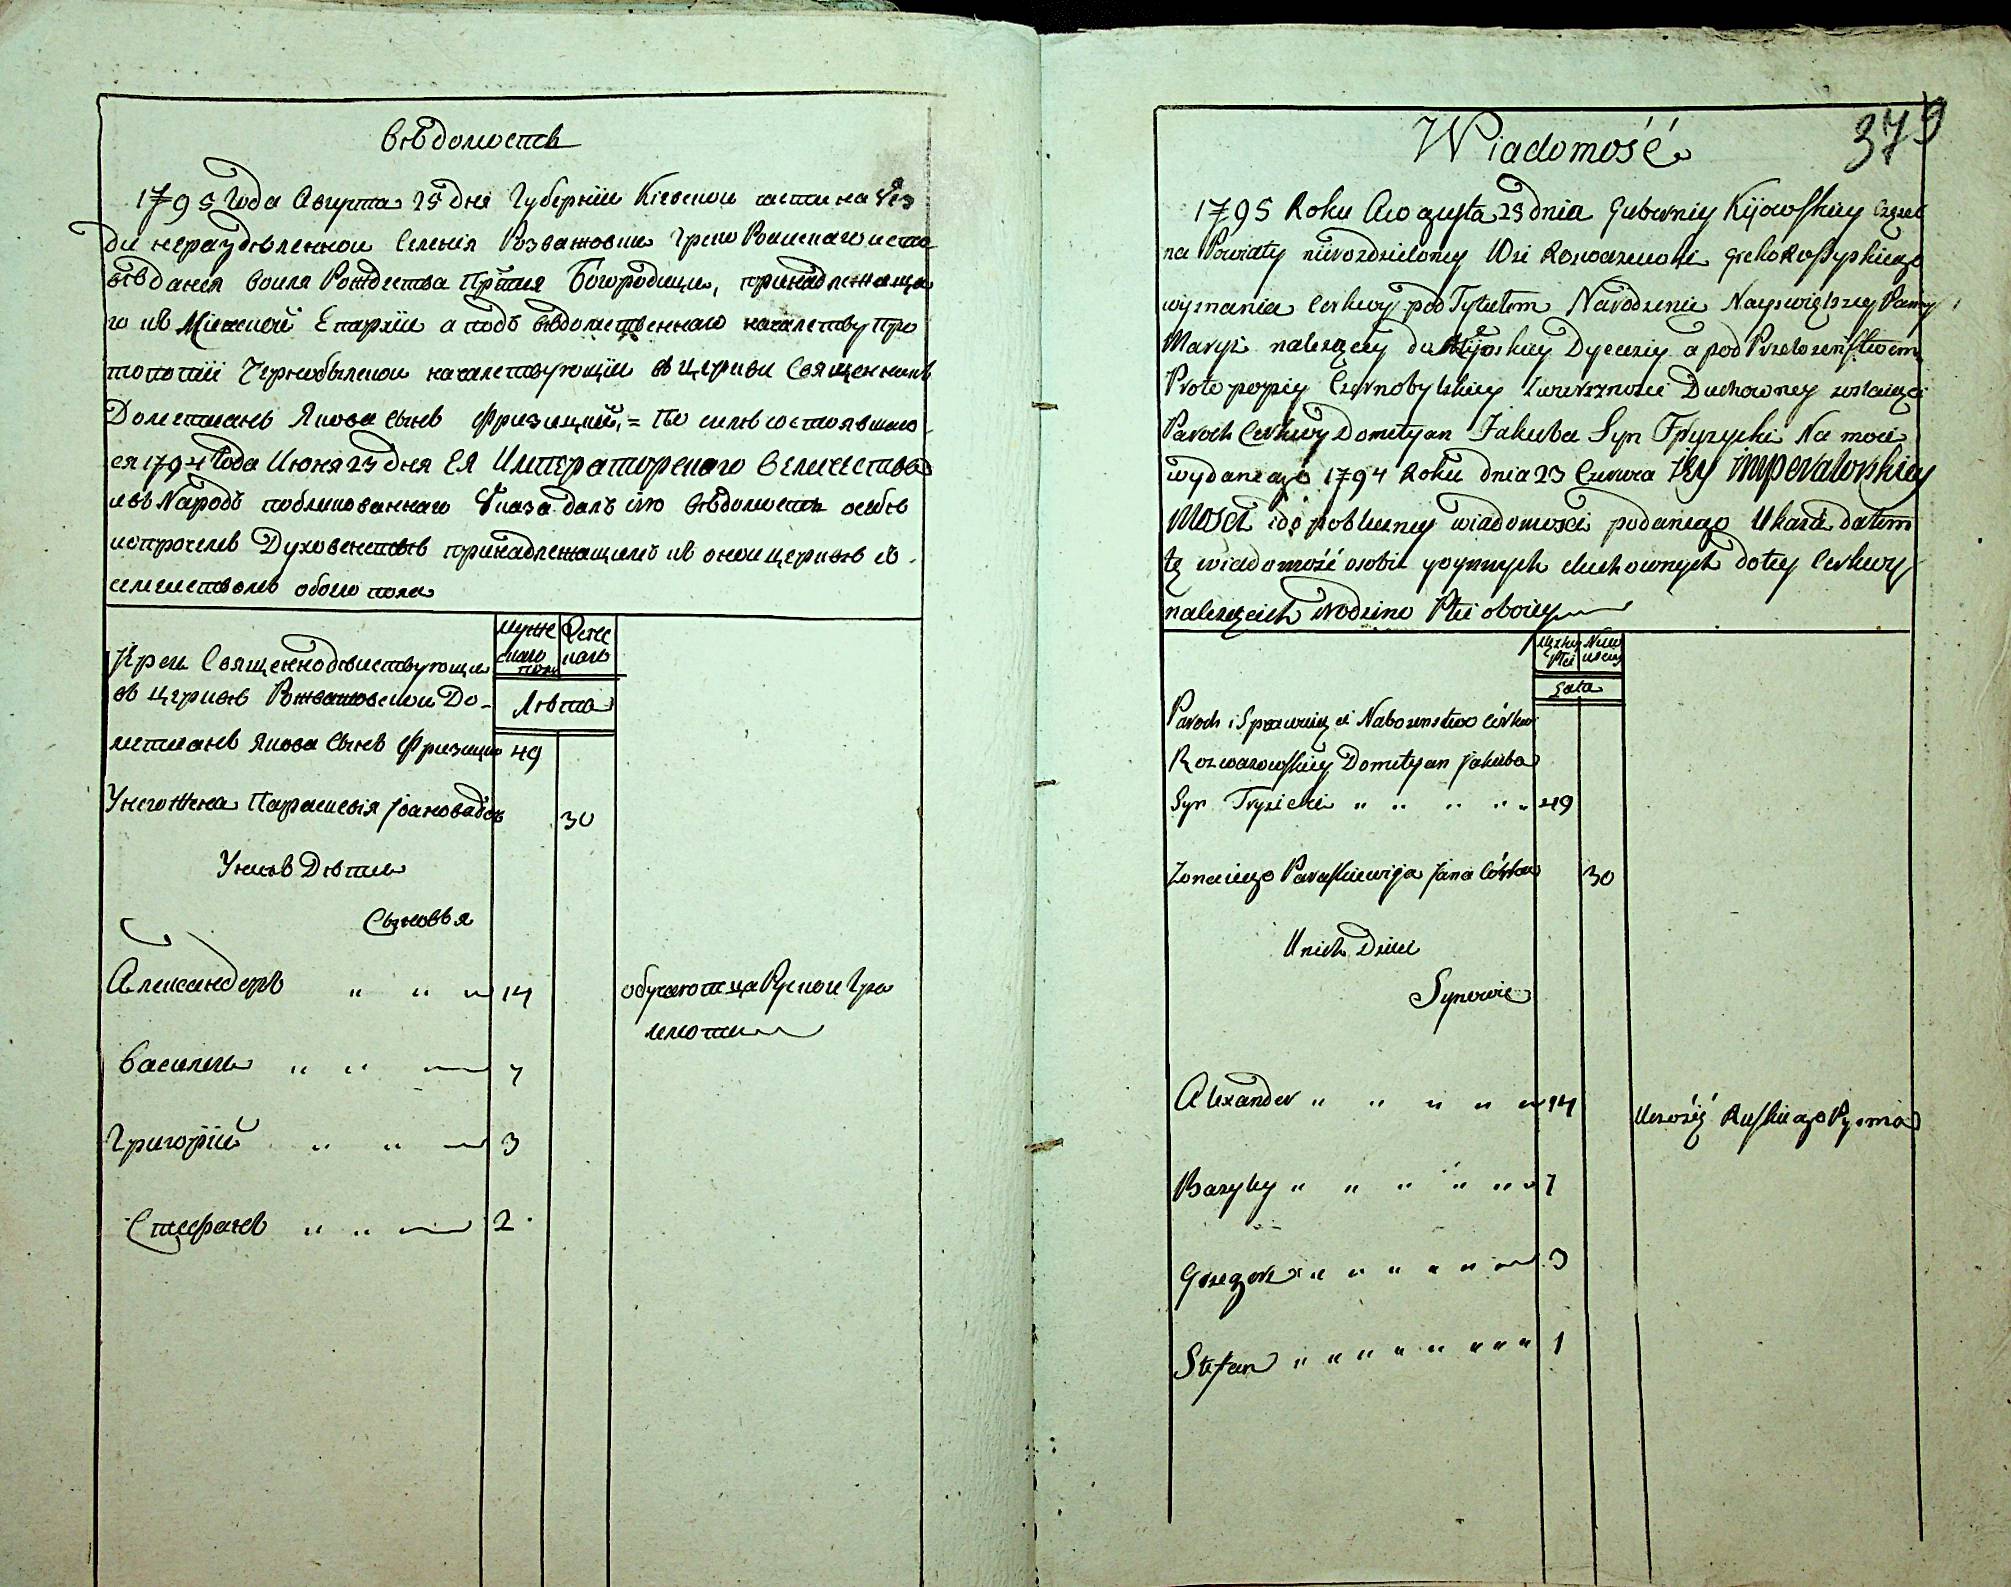 Вѣдомость
1795 Года Августа 25 дня Губернїи Кіевской части на Уез
ды нераздѣленной Селенія Розважовки Греко Россискаго испо
вѣданія Рождества Прстыя Богородицы, принадлежаща
го къ Кіевской Епархїи а подъ вѣдомственнаго началству Про
топопїи Чернобылской началствующїи въ церкви Священникъ
Дометианъ Якова сынъ Фризицкий = По силѣ состоявшаго
ся 1794 Года Июня 23 дня Ея Императорскаго Величества
и въ Народъ публикованнаго Указа далъ сїю вѣдомость о себѣ
и о прочемъ Духовенствѣ принадлежащемъ къ оной церквѣ съ
семействомъ обоего пола
Мужескаго пола
Женскаго
Лѣта
Іерей Священнодѣиствующїи
въ церквѣ Розважовской До-
метианъ Якова Сынъ Фризицкий 49
У него жена Параскевія Іоанова дочь 30
У нихъ Дѣти
Сыновья
Александеръ " " " 14 обучаютца Руской Гра
моти
Василий " " 7
Григорїй " " 3
Стефанъ " " 2
379
Wiadomość
1795 Roku Awgusta 25 dnia Gubernij Kijowskiey Częsci
na Powiaty nierozdzieloney Wsi Rozwazewki grekoRossyskiego
wyznania Cerkwy pod Tytułem Narodzenia Nayswiętszey Panny
Maryi należącey do Kijowskiey Dyecezij a pod Przełożeństwem
Protopopij Czernobylskiey Zwierzności Duchowney zostaiący
Paroch Cerkwy Dometyan Jakuba Syn Fryzycki Na moci
wydanego 1794 Roku dnia 23 Czerwca Jey Imperatorskiey
Mosci i do publiczney wiadomości podanego Ukazu datem
tę wiadomość o sobie y o ynnych duchownych do tey Cerkwy
należących z rodzino Płci oboiey
Męzkiey Płci
Niewiesciey
Lata
Paroch i Sprawuiący Nabozenstwo w Cérkwi
Rozwazowskiey Dometyan Jakuba
Syn Fryzicki " " " " " 49
Zona iego Paraskiewija Jana Córka 30
U nich Dzieci
Synowie
Alexander " " " " " 14 Uczący Ruskiego Pysma
Bazyly " " " " " 7
Grzegorz " " " " " 3
Stefan " " " " " " " " 1